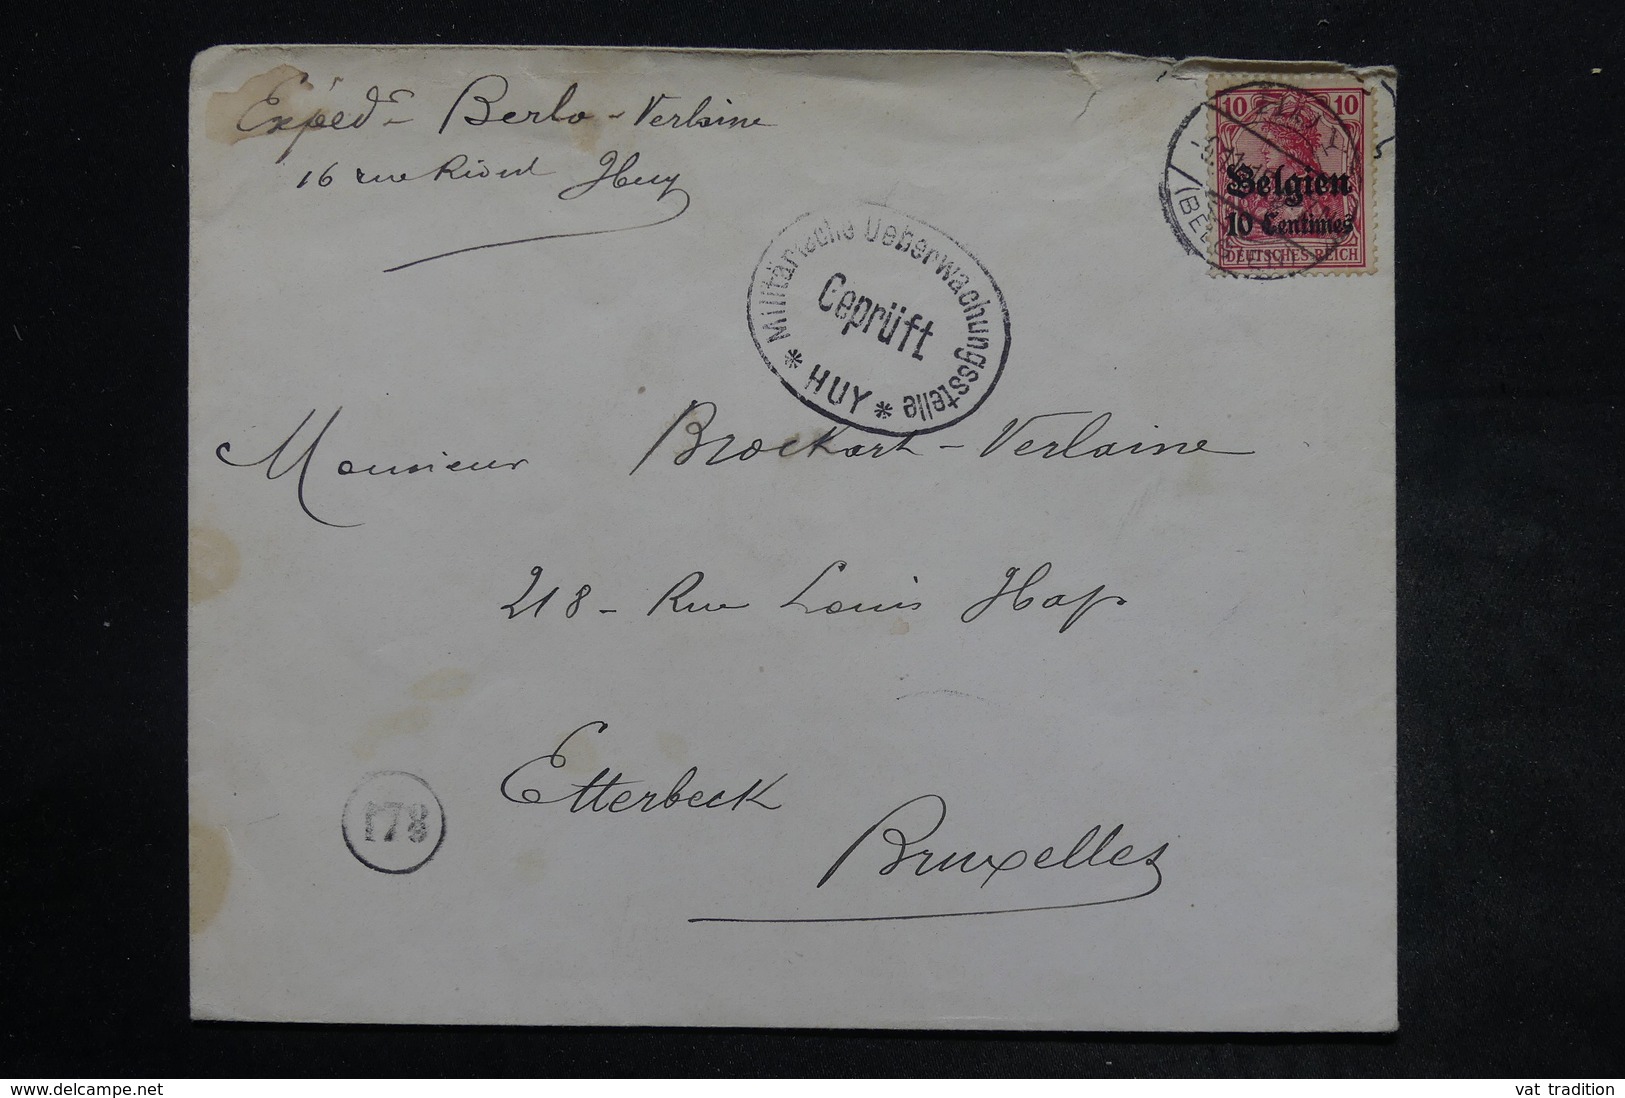 Expéd - Berlo - Verlaine
16 rue Huy
10 10
Belgien
10 Centimes
DEUTSCHES REICH
(BELGIEN)
Militärische Ueberwachungsstelle
Geprüft
* HUY *
Monsieur Brockart - Verlaine
218 - Rue Louis Hap
Etterbeck
Bruxelles
178
www.delcampe.net
vat tradition